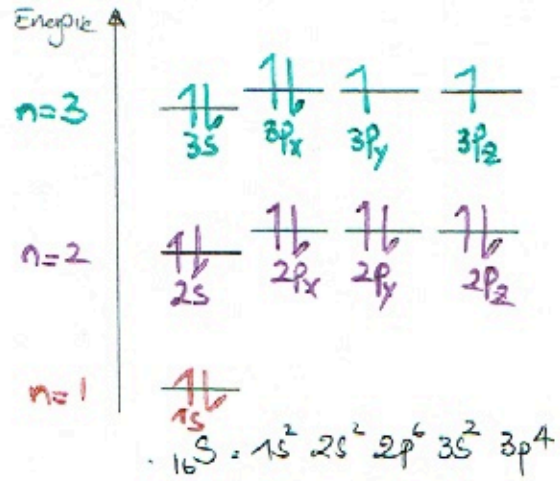 Energie
n=3
3s 3px 3py 3pz
n=2
2s 2px 2py 2pz
n=1
1s
16S : 1s² 2s² 2p⁶ 3s² 3p⁴